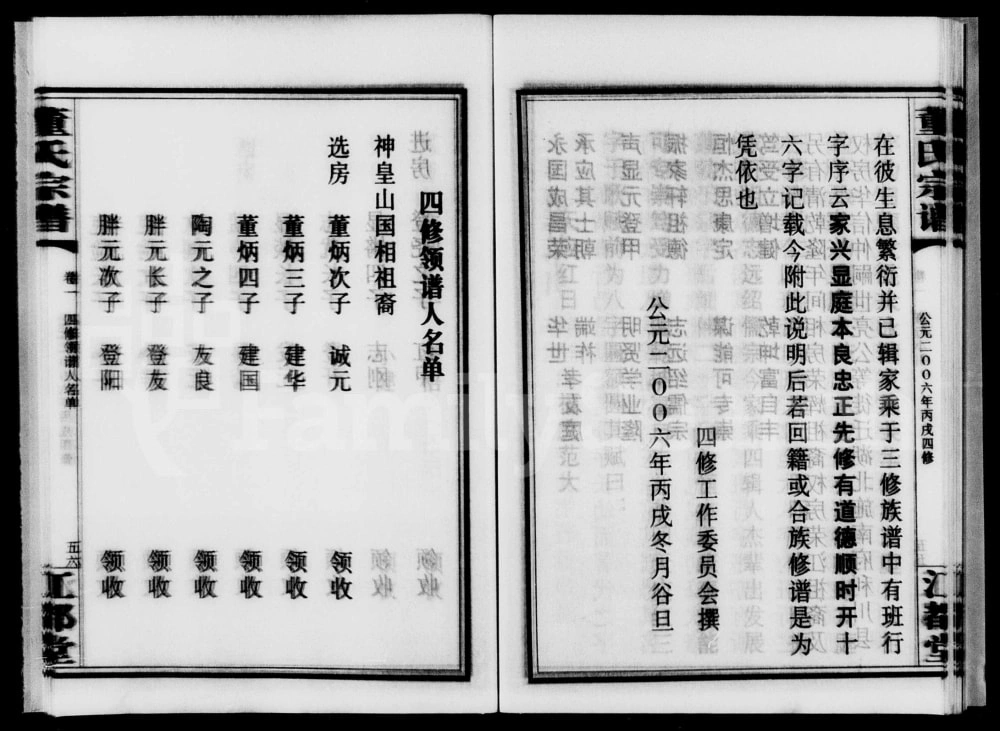 董氏宗谱
公元二〇〇六年丙戌四修
江都堂
在彼生息繁衍并已辑家乘于三修族谱中有班行
字序云家兴显庭本良忠正先修有道德顺时开十
六字记载今附此说明后若回籍或合族修谱是为
凭依也
四修工作委员会撰
公元二〇〇六年丙戌冬月谷旦
四修领谱人名单
神皇山国相祖裔
选房 董炳次子 诚元 领收
董炳三子 建华 领收
董炳四子 建国 领收
陶元之子 友良 领收
胖元长子 登友 领收
胖元次子 登阳 领收
董氏宗谱
卷一 四修领谱人名单
五六
江都堂